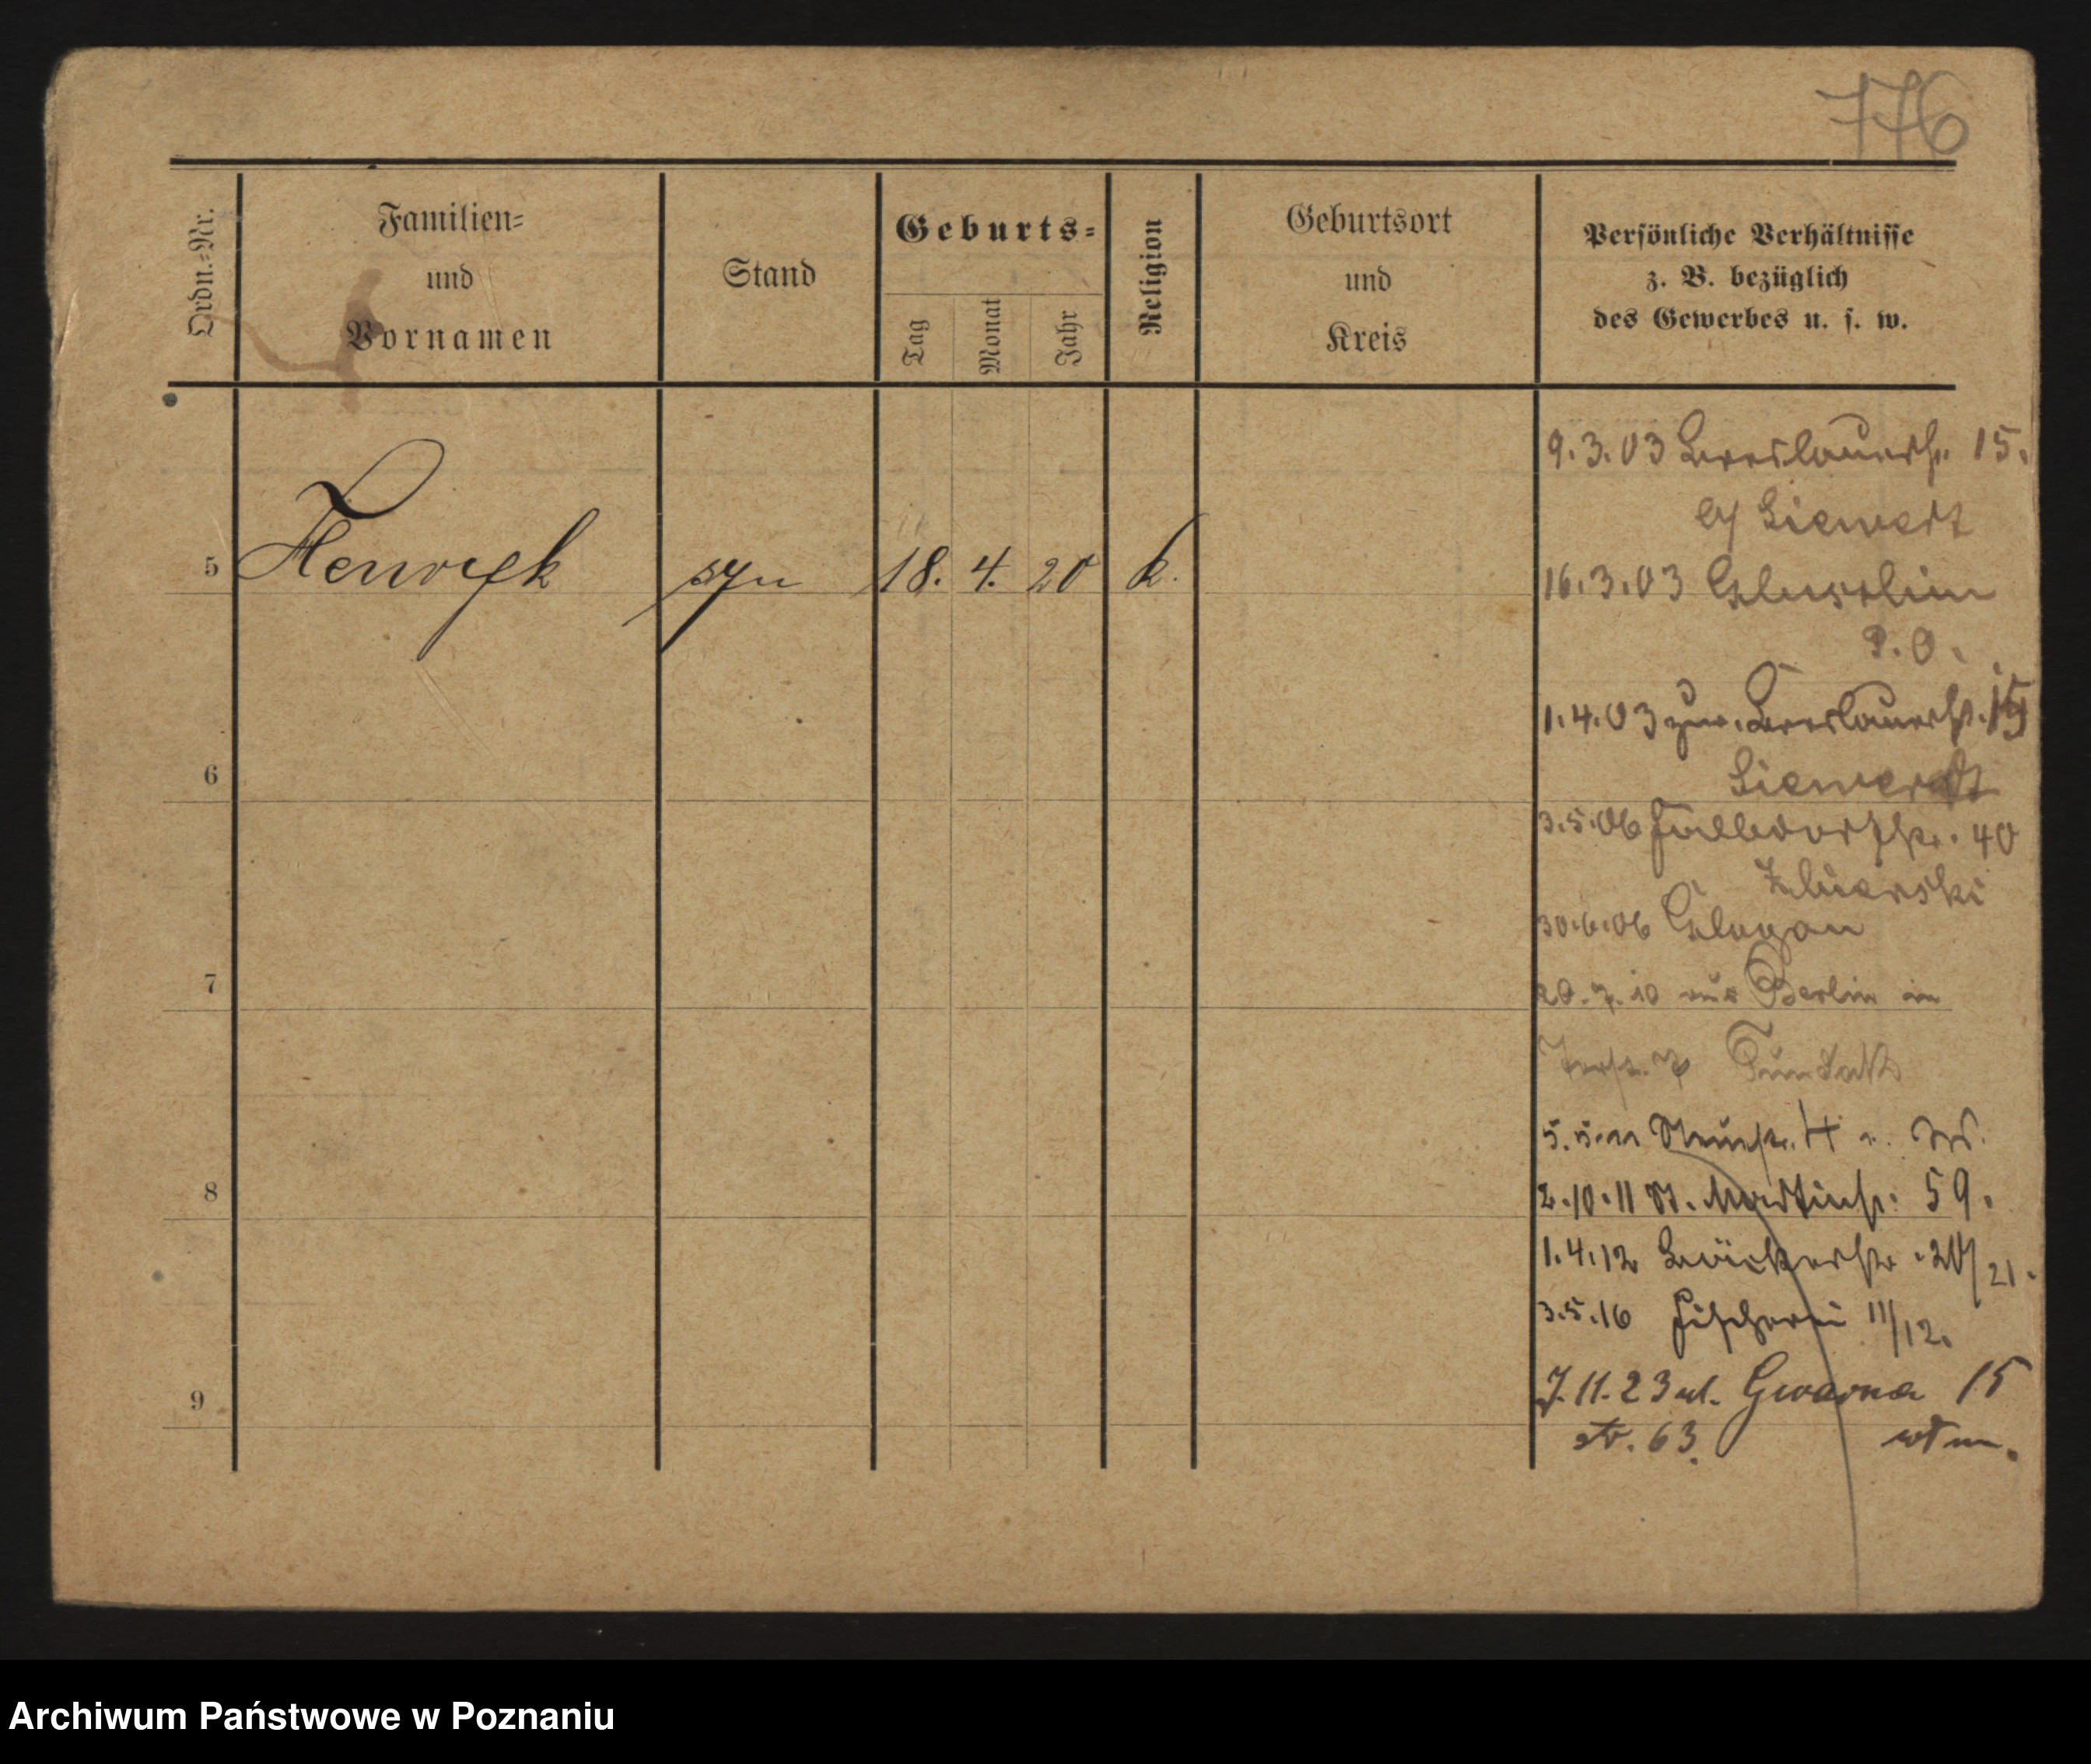 776
Ordn.-Nr.
Familien-
und
Vornamen
Stand
Geburts-
Tag
Monat
Jahr
Religion
Geburtsort
und
Kreis
Persönliche Verhältnisse
z. B. bezüglich
des Gewerbes u. s. w.
5 Henryk syn 18. 4. 20 k.
6
7
8
9
9.3.03 Breslauerstr. 15.
Siewert
16.3.03
P.O.
1.4.03 zur. Breslauerstr. 15
Siewert
3.5.06 40
30.6.06 Glogau
20.7.10 aus Berlin in
5.5.11
2.10.11 St. Martinstr. 59.
1.4.12 Bäckerstr. 20/21.
3.5.16 Fischerei 11/12.
7.11.23 ul. Gwarna 15
str. 63.
Archiwum Państwowe w Poznaniu